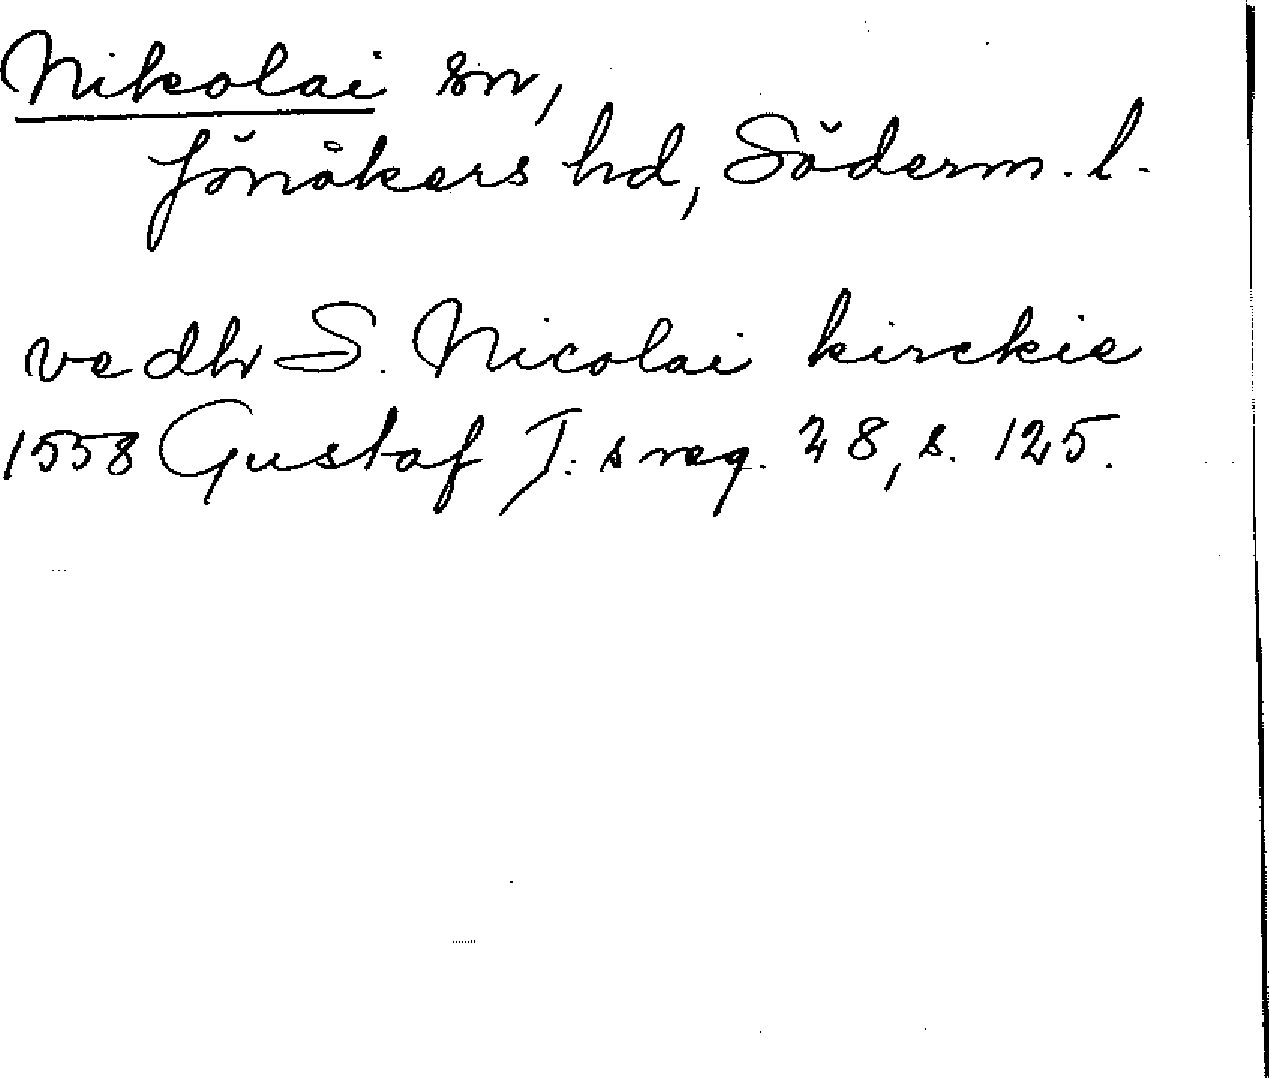 Nikolai sn,
Jönåkers hd, Söderm. l.
vedhr S. Nicolai kirckie
1558 Gustaf I:s reg. 28, s. 125.